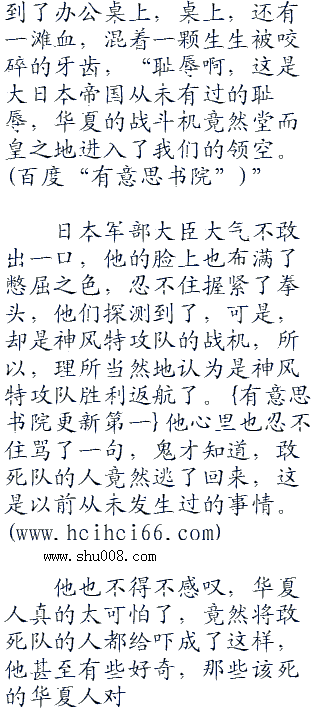 到了办公桌上，桌上，还有
一滩血，混着一颗生生被咬
碎的牙齿，“耻辱啊，这是
大日本帝国从未有过的耻
辱，华夏的战斗机竟然堂而
皇之地进入了我们的领空。
(百度“有意思书院”)”
日本军部大臣大气不敢
出一口，他的脸上也布满了
憋屈之色，忍不住握紧了拳
头，他们探测到了，可是，
却是神风特攻队的战机，所
以，理所当然地认为是神风
特攻队胜利返航了。{有意思
书院更新第一}他心里也忍不
住骂了一句，鬼才知道，敢
死队的人竟然逃了回来，这
是以前从未发生过的事情。
(www.hcihci66.com)
www.shu008.com
他也不得不感叹，华夏
人真的太可怕了，竟然将敢
死队的人都给吓成了这样，
他甚至有些好奇，那些该死
的华夏人对